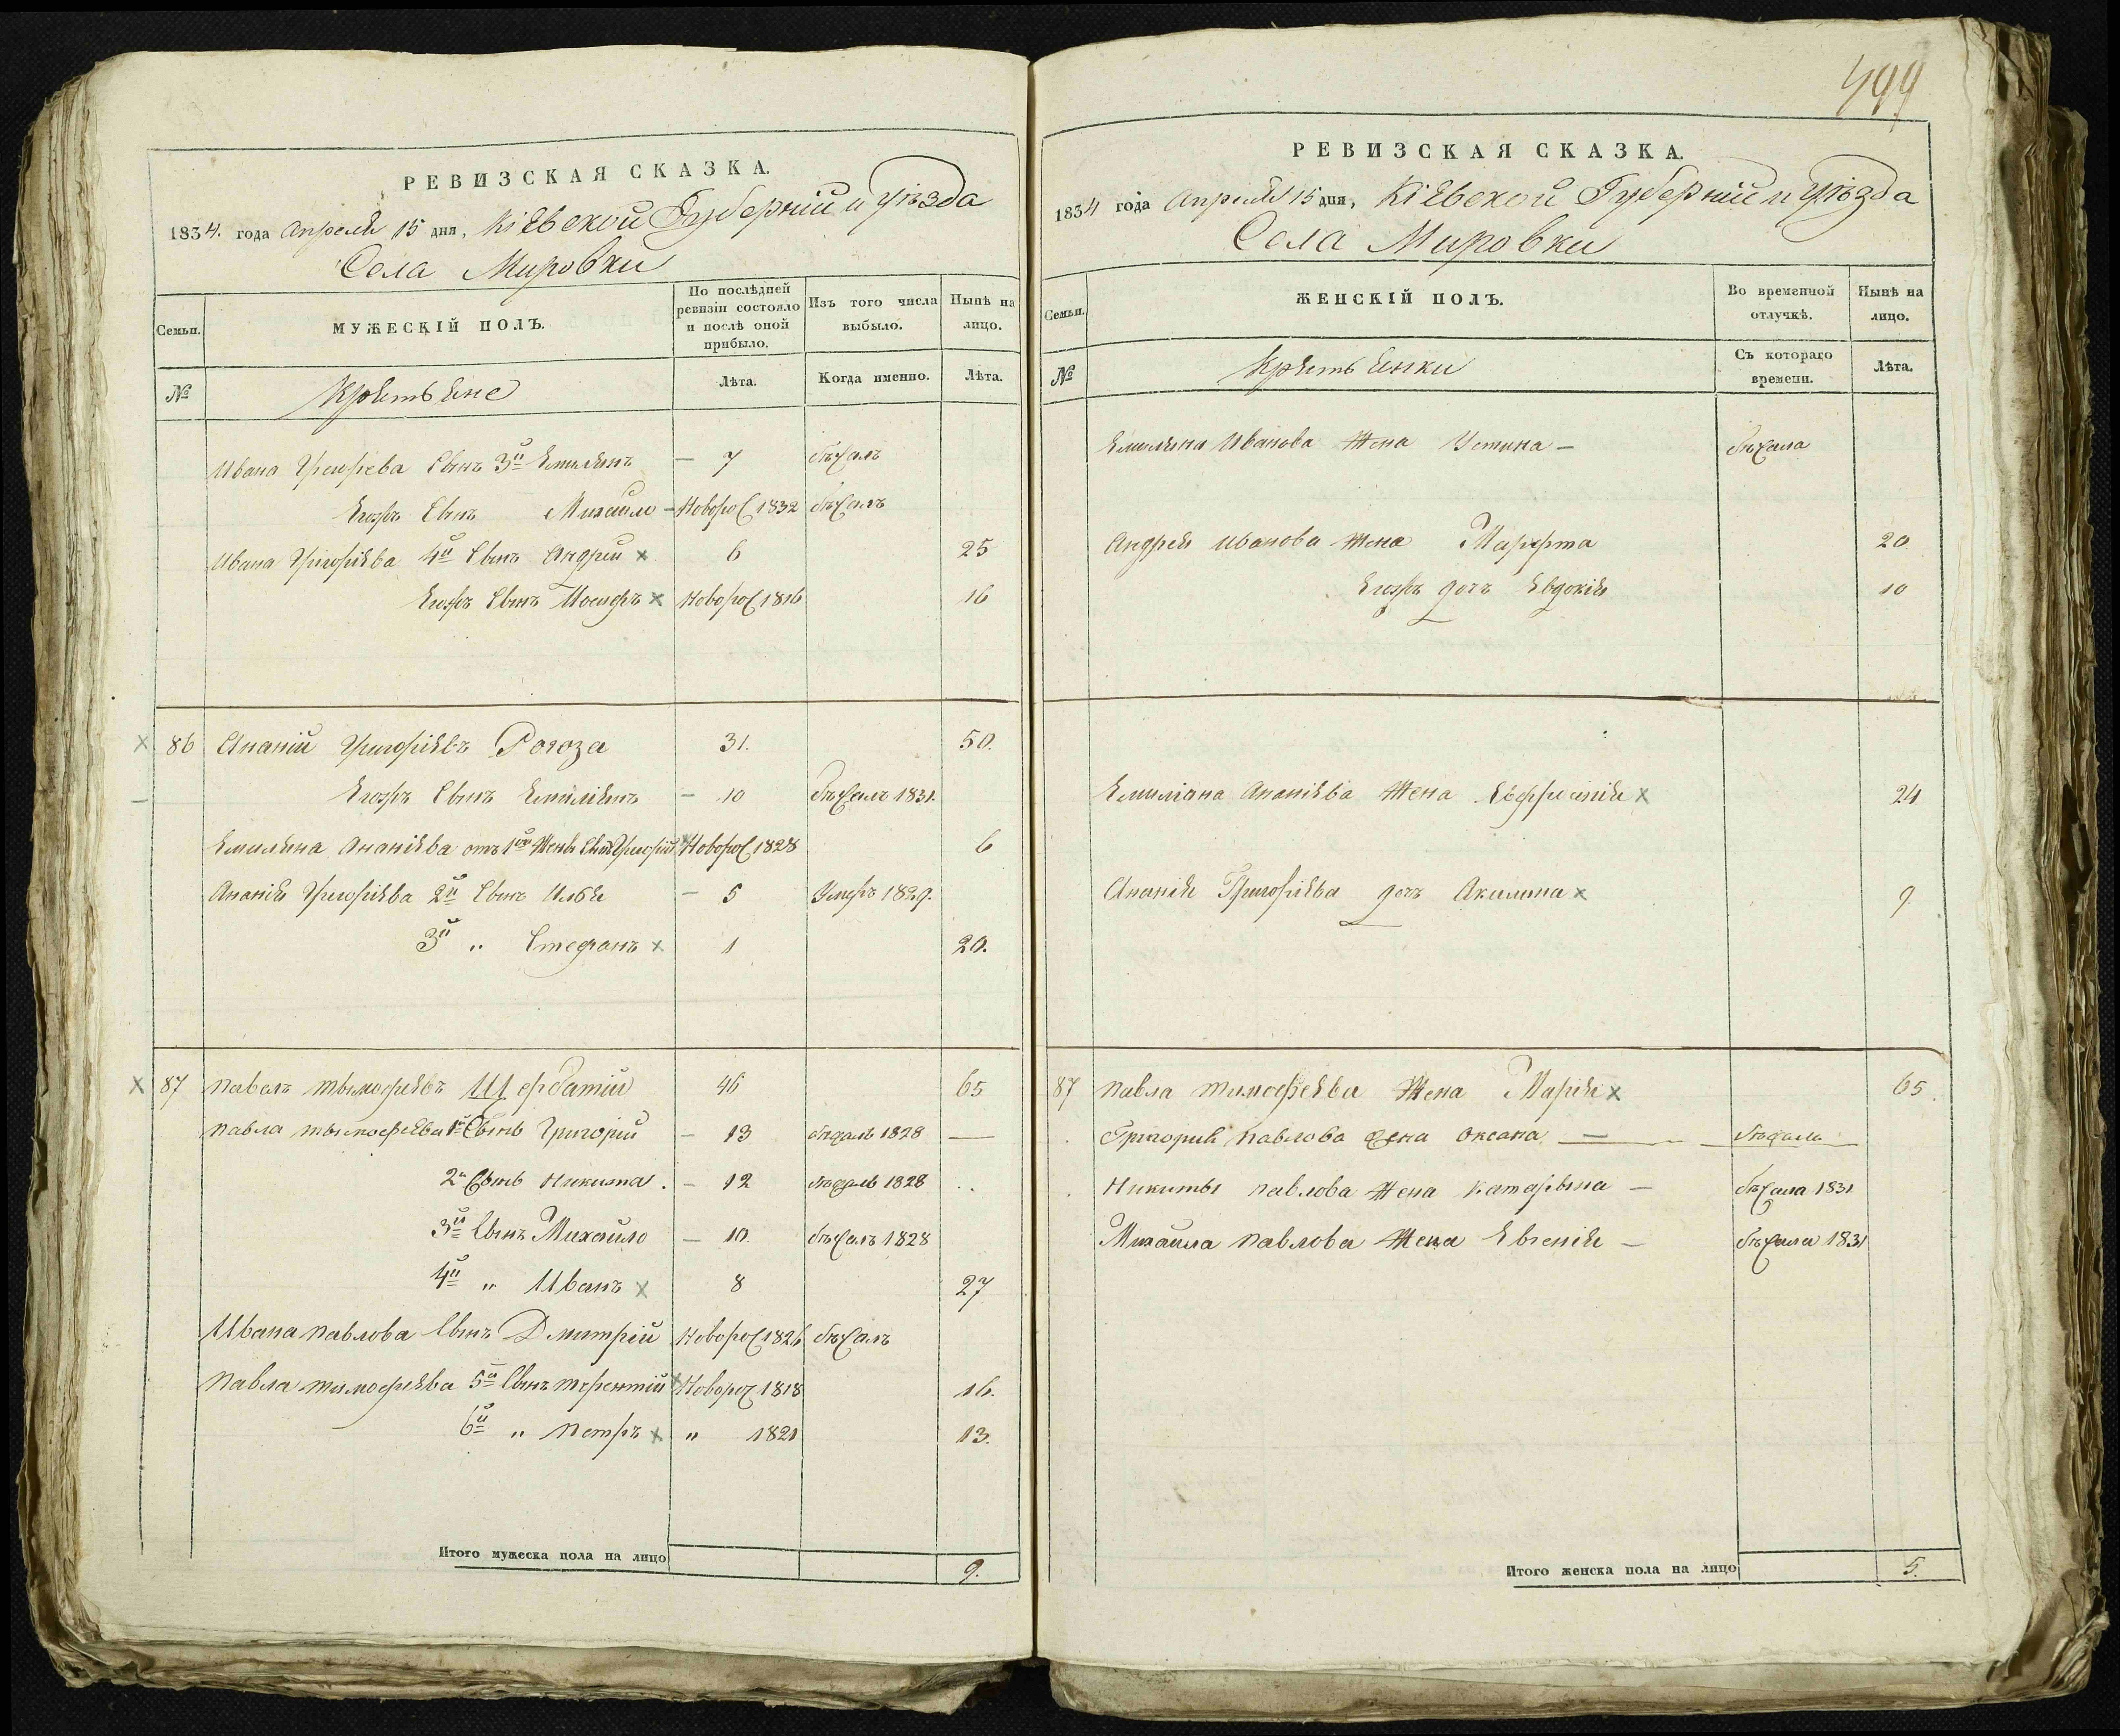 499
РЕВИЗСКАЯ СКАЗКА.
1834. года Апреля 15 дня, Кіевской Губерніи и уѣзда
Села Мировки
Семьи. МУЖЕСКІЙ ПОЛЪ. По послѣдней ревизіи состояло и послѣ оной прибыло. Изъ того числа выбыло. Нынѣ на лицо.
№ Крѣстьяне Лѣта. Когда именно. Лѣта.
Ивана Григорьева Сынъ 3й Емилянъ — 7 бѣжалъ
Егожъ Сынъ Михайло — Новорож 1832 бѣжалъ
Ивана Григоріева 4й Сынъ Андрей x 6 25
Егожъ Сынъ Иосифъ x Новорож 1816 16
x 86 Ананій Григоріевъ Рогоза 31. 50.
— Егожъ Сынъ Емиліянъ — 10 бѣжалъ 1831.
Емиляна Ананіева отъ 1ой Жены Сынъ Григорій x Новорож 1828 6
Ананія Григоріева 2й Сынъ Илья — 5 Умеръ 1829.
3й " Стефанъ x 1 20.
x 87 Павелъ Тымофѣевъ Щербатій 46 65
Павла Тымофѣева 1й Сынъ Григорій — 13 бѣжалъ 1828 —
2й Сынъ Никита. — 12 бѣжалъ 1828 ..
3й Сынъ Михайло — 10. бѣжалъ 1828
4й " Иванъ x 8 27
Ивана Павлова Сынъ Дмитрій Новорож 1826 бѣжалъ
Павла Тимофѣева 5й Сынъ Терентій x Новорож 1818 16.
6й " Петръ x " 1821 13.
Итого мужеска пола на лицо 9.
РЕВИЗСКАЯ СКАЗКА.
1834 года Апреля 15 дня, Кіевской Губерніи и уѣзда
Села Мировки
Семьи. ЖЕНСКІЙ ПОЛЪ. Во временной отлучкѣ. Нынѣ на лицо.
№ Крѣстьянки Съ котораго времени. Лѣта.
Емиляна Иванова Жена Устина — бѣжала
Андрея Иванова Жена Марфта 20
Егожъ дочъ Евдокія 10
Емиліана Ананіева Жена Евфросинія x 24
Ананія Григоріева дочъ Акилина x 9
87 Павла Тимофѣева Жена Марія x 65.
Григорія Павлова Жена Оксана — бѣжала
Никиты Павлова Жена Катарына — бѣжала 1831
Михаила Павлова Жена Евгенія — бѣжала 1831
Итого женска пола на лицо 5.